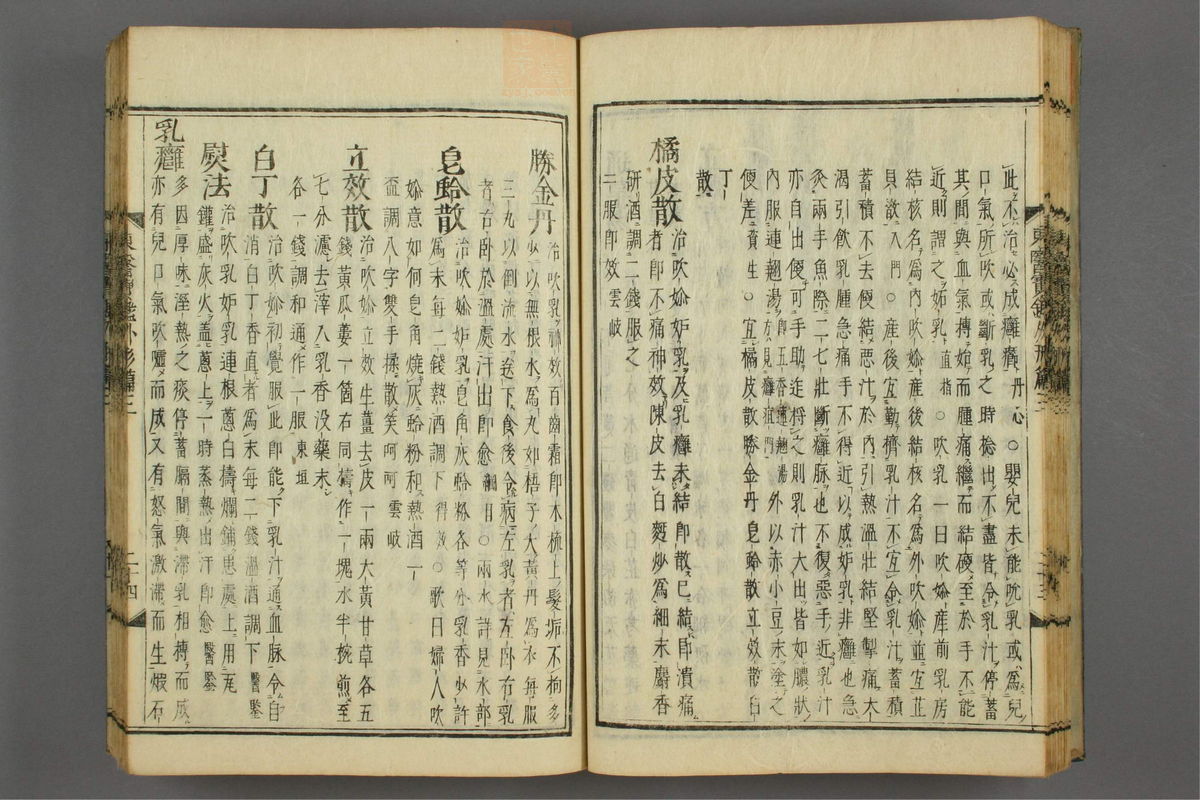 此不治必成癰癤丹心○嬰兒未能吮乳或爲兒
口氣所吹或斷乳之時捻出不盡皆令乳汁停蓄
其間與血氣搏始而腫痛繼而結硬至於手不能
近則謂之妬乳直指○吹乳一曰吹妳産前乳房
結核名爲內吹妳産後結核名爲外吹妳並宜芷
貝散入門○産後宜勤擠乳汁不宜令乳汁蓄積
蓄積不去便結惡汁於內引熱溫壯結堅掣痛大
渴引飮乳腫急痛手不得近以成妬乳非癰也急
灸兩手魚際二七壯斷癰脉也不復惡手近乳汁
亦自出便可手助迮捋之則乳汁大出皆如膿狀
內服連翹湯卽五香連翹湯方見癰疽門外以赤小豆末塗之
便差資生○宜橘皮散勝金丹皂蛤散立效散白
丁散
橘皮散治吹妳妬乳及乳癰未結卽散已結卽潰痛
者卽不痛神效陳皮去白麪炒爲細末麝香
硏酒調二錢服之
二服卽效
勝金丹治吹乳神效百齒霜卽木梳上髮垢不拘多
少以無根水爲丸如梧子大黃丹爲衣每服
三丸以倒流水送下食後令病左乳者左臥右乳
者右臥於溫處汗出卽愈綱目○兩水詳見水部
皂蛤散治吹妳妬乳皂角灰蛤粉各等分乳香少許
爲末每二錢熱酒調下得效○歌曰婦人吹
妳意如何皂角燒灰蛤粉和熱酒一
盃調八字雙手揉散笑呵呵雲岐
立效散治吹妳立效生薑去皮一兩大黃甘草各五
錢黃瓜蔞一箇右同擣作一塊水半椀煎至
七分濾去滓入乳香沒藥末
各一錢調和通作一服東垣
白丁散治吹妳初覺服此卽能下乳汁通血脉令自
消白丁香直者爲末每二錢溫酒調下醫鑒
熨法治吹乳妬乳連根蔥白擣爛鋪患處上用瓦
鑵盛灰火盖蔥上一時蒸熱出汗卽愈醫鑒
乳癰多因厚味溼熱之痰停蓄膈間與滯乳相搏而成
亦有兒口氣吹噓而成又有怒氣激滯而生煅石